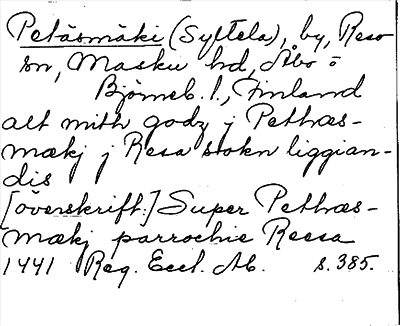 Petäsmäki (Syltela), by, Reso
sn, Masku hd, Åbo o
Björneb. l., Finland
alt mith godz j Pethæs-
mækj j Resa sokn liggian-
dis
[överskrift:] Super Pethæs-
mækj parrochie Reesa
1441 Reg. Eccl. Ab. s. 385.